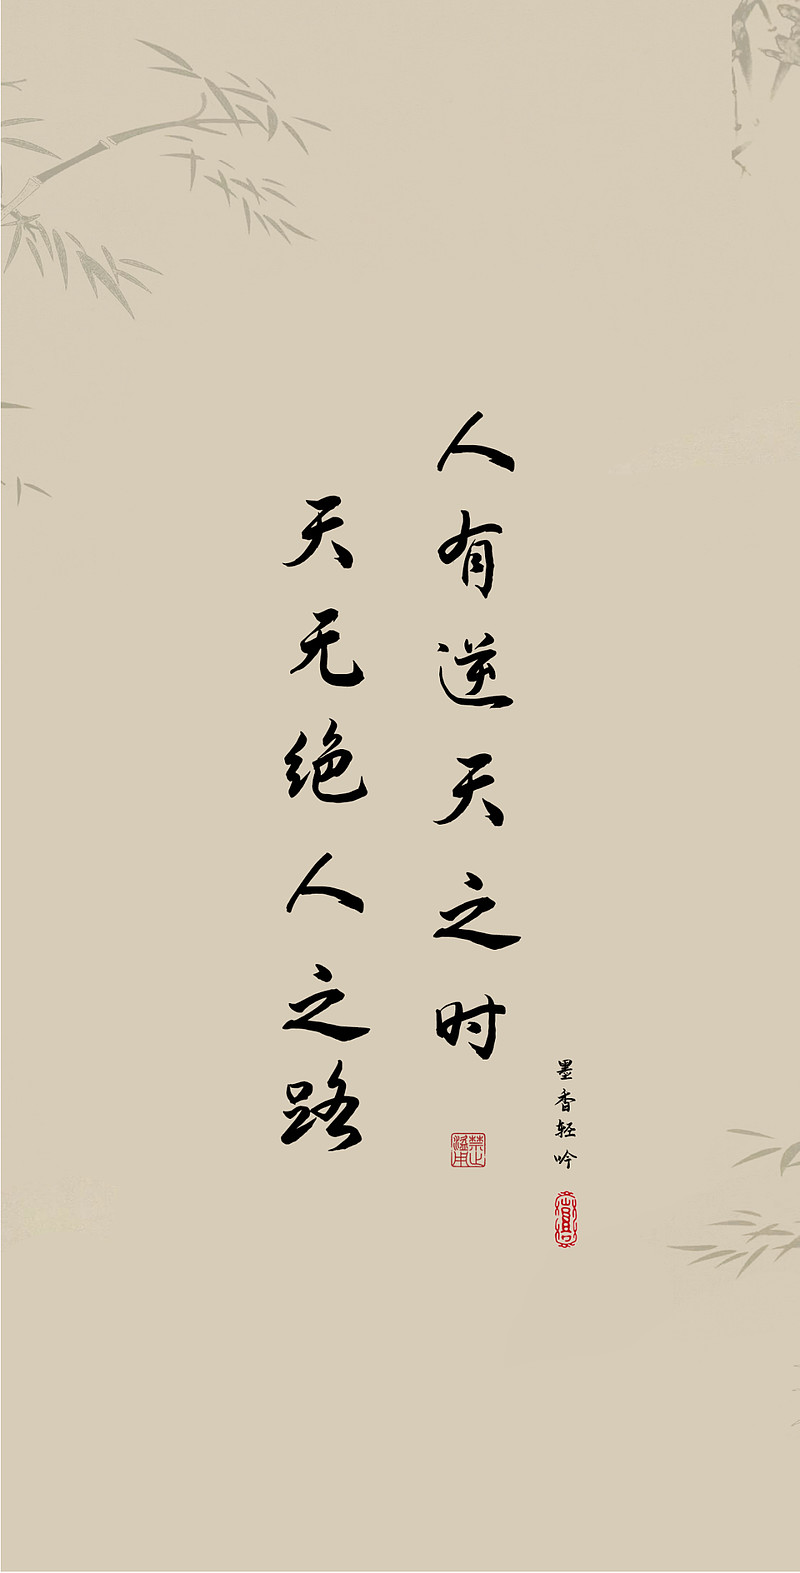 人有逆天之时
天无绝人之路
墨香轻吟
禁止
滥用